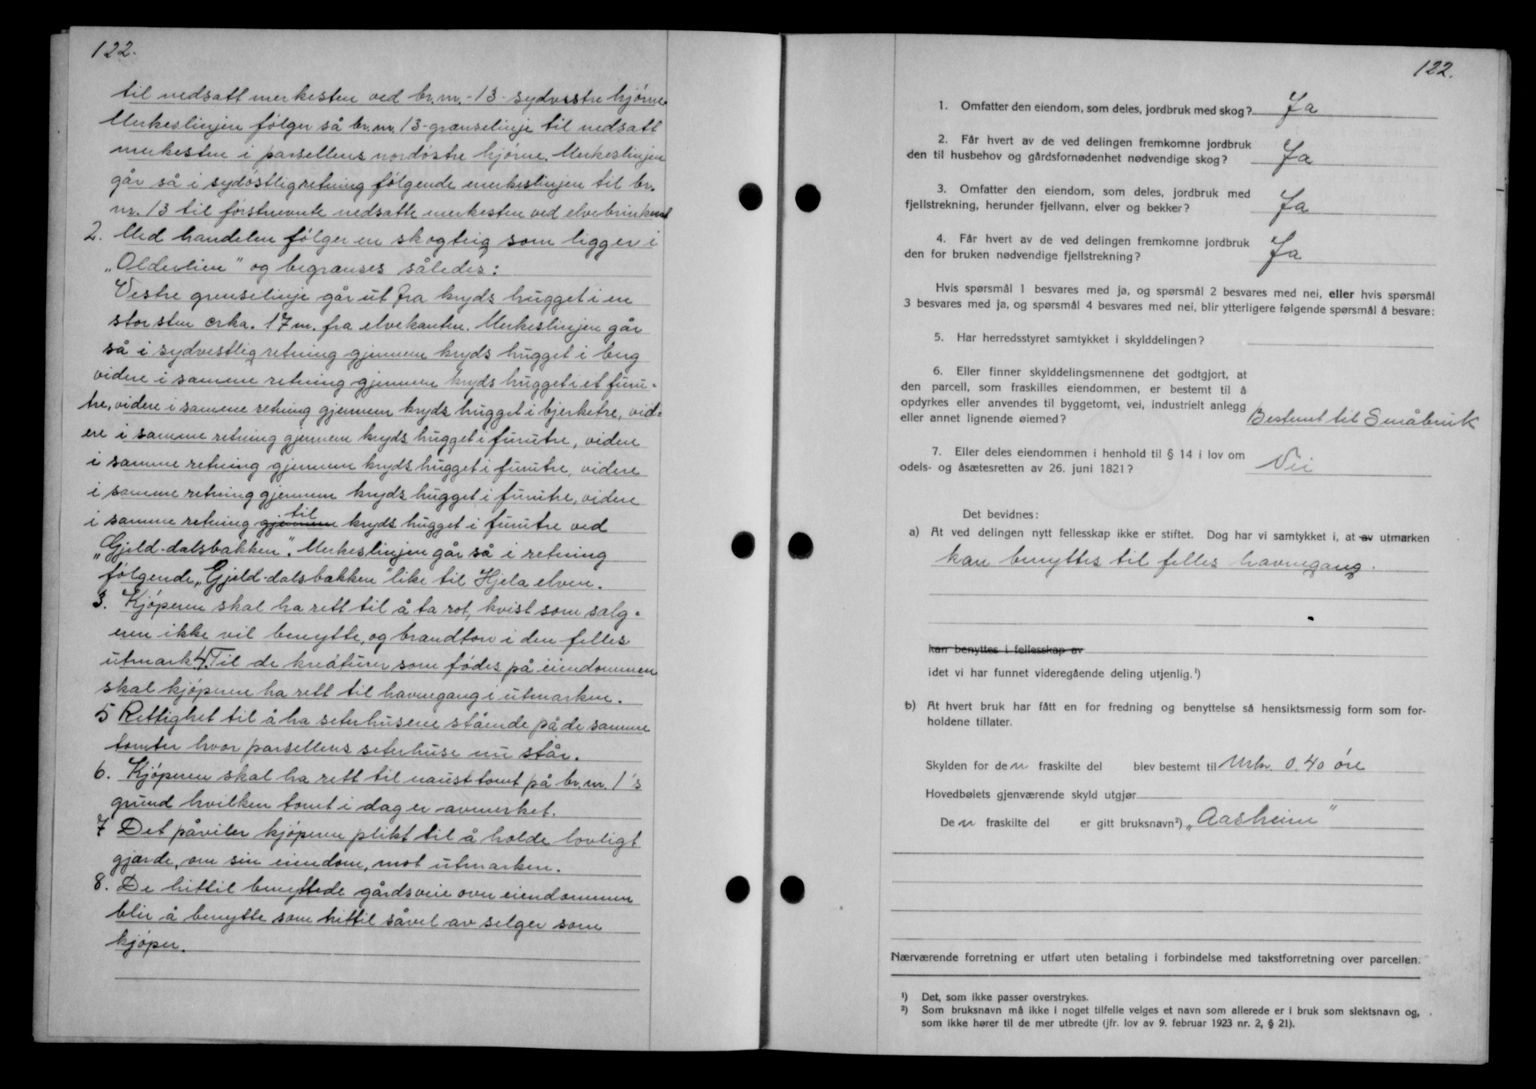 122.
til nedsatt merkesten ved br.nr. 13 sydvestre hjørne.
Merkeslinjen følger så br.nr. 13 grænselinje til nedsatt
merkesten i parsellens nordøstre hjørne. Merkeslinjen
går så i sydøstlig retning følgende merkeslinjen til br.
nr. 13 til førstnevnte nedsatte merkesten ved elvebrinken
2. Med handelen følger en skogteig som ligger i
„Olderlien" og begrænses således:
Vestre grenselinje går ut fra kryds hugget i en
stor sten crka. 17 m. fra elvekanten. Merkeslinjen går
så i sydvestlig retning gjennem kryds hugget i berg
videre i samme retning gjennem kryds hugget i et furu-
tre, videre i samme retning gjennem kryds hugget i bjerketre, vid-
ere i samme retning gjennem kryds hugget i furutre, videre
i samme retning gjennem kryds hugget i furutre, videre
i samme retning gjennem kryds hugget i furutre, videre
i samme retning gjennem til kryds hugget i furutre ved
„Gjeld-dalsbakken". Merkeslinjen går så i retning
følgende „Gjeld-dalsbakken like til Hjela elven.
3. Kjøperen skal ha rett til å ta rot, kvist som selg-
eren ikke vil benytte, og brandtorv i den felles
utmark 4. Til de kreaturer som fødes på eiendommen
skal kjøperen ha rett til havnegang i utmarken.
5 Rettighet til å ha seterhusene stående på de samme
tomter hvor parsellens seterhuse nu står.
6. Kjøperen skal ha rett til nausttomt på br.nr. 1's
grund hvilken tomt i dag er avmerket.
7 Det påviler kjøperen plikt til å holde lovligt
gjærde, om sin eiendom, mot utmarken.
8. De hittil benyttede gårdsveie over eiendommen
blir å benytte som hittil såvel av selger som
kjøper.
122.
1. Omfatter den eiendom, som deles, jordbruk med skog? Ja
2. Får hvert av de ved delingen fremkomne jordbruk
den til husbehov og gårdsfornødenhet nødvendige skog? Ja
3. Omfatter den eiendom, som deles, jordbruk med
fjellstrekning, herunder fjellvann, elver og bekker? Ja
4. Får hvert av de ved delingen fremkomne jordbruk
den for bruken nødvendige fjellstrekning? Ja
Hvis spørsmål 1 besvares med ja, og spørsmål 2 besvares med nei, eller hvis spørsmål
3 besvares med ja, og spørsmål 4 besvares med nei, blir ytterligere følgende spørsmål å besvare:
5. Har herredsstyret samtykket i skylddelingen?
6. Eller finner skylddelingsmennene det godtgjort, at
den parcell, som fraskilles eiendommen, er bestemt til å
opdyrkes eller anvendes til byggetomt, vei, industrielt anlegg
eller annet lignende øiemed? Bestemt til Småbruk
7. Eller deles eiendommen i henhold til § 14 i lov om
odels- og åsætesretten av 26. juni 1821? Nei
Det bevidnes:
a) At ved delingen nytt fellesskap ikke er stiftet. Dog har vi samtykket i, at av utmarken
kan benyttes til felles havnegang.
kan benyttes i fellesskap av
idet vi har funnet videregående deling utjenlig.¹)
b) At hvert bruk har fått en for fredning og benyttelse så hensiktsmessig form som for-
holdene tillater.
Skylden for den fraskilte del blev bestemt til Mrk. 0.40 øre
Hovedbølets gjenværende skyld utgjør
Den fraskilte del er gitt bruksnavn²) „Aasheim"
Nærværende forretning er utført uten betaling i forbindelse med takstforretning over parcellen.
¹) Det, som ikke passer overstrykes.
²) Som bruksnavn må ikke i noget tilfelle velges et navn som allerede er i bruk som slektsnavn og,
som ikke hører til de mer utbredte (jfr. lov av 9. februar 1923 nr. 2, § 21).